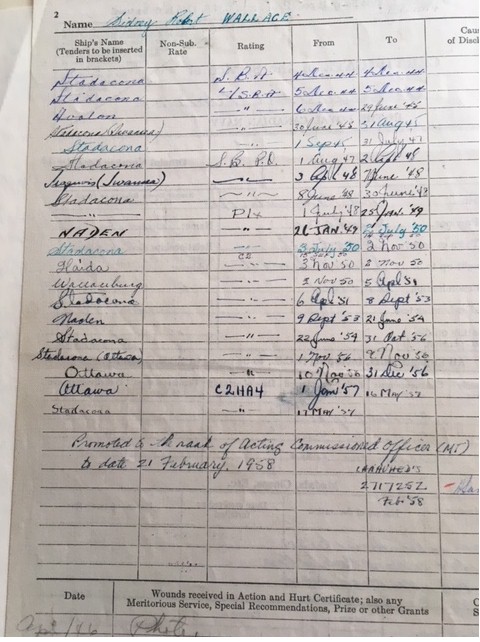 2
Name Sidney Robt WALLACE
Ship's Name (Tenders to be inserted in brackets) Non-Sub. Rate Rating From To Cau of Disch
Stadacona S.B.A 4 Dec. 44 4 Dec. 44
Stadacona L/S.B.A 5 Dec. 44 5 Dec. 44
Avalon " 6 Dec. 44 29 June '45
(Swansea) -"- 30 June '45 31 Aug 45
Stadacona -"- 1 Sept 45 31 July 47
Stadacona 1 Aug 47
Iroquois (Swansea) 3 Apl 48 7 June '48
Stadacona -"- 8 June '48 30 June '48
-"- 1 July '48
NADEN -"- 26 JAN. 49 2 July '50
Stadacona -"- 3 July '50 2 Nov 50
Haida -"- 3 Nov 50 Nov 50
-"- Nov 50 5 Apl 51
Stadacona -"- 6 Apl 51 8 Sept '53
Naden -"- 9 Sept '53 21 June '54
Stadacona -"- 22 June '54 31 Oct. 56
Stadacona (Ottawa) -"- 1 Nov '56 9 Nov 56
Ottawa " 10 Nov 56 31 Dec '56
Ottawa C2HA4 1 Jan '57 16 May '57
Stadacona -"- 17 May '57
Promoted to the rank of Acting Commissioned Officer (MT)
to date 21 February, 1958
CNAVHEDS
271725Z
Feb '58
Date Wounds received in Action and Hurt Certificate; also any Meritorious Service, Special Recommendations, Prize or other Grants